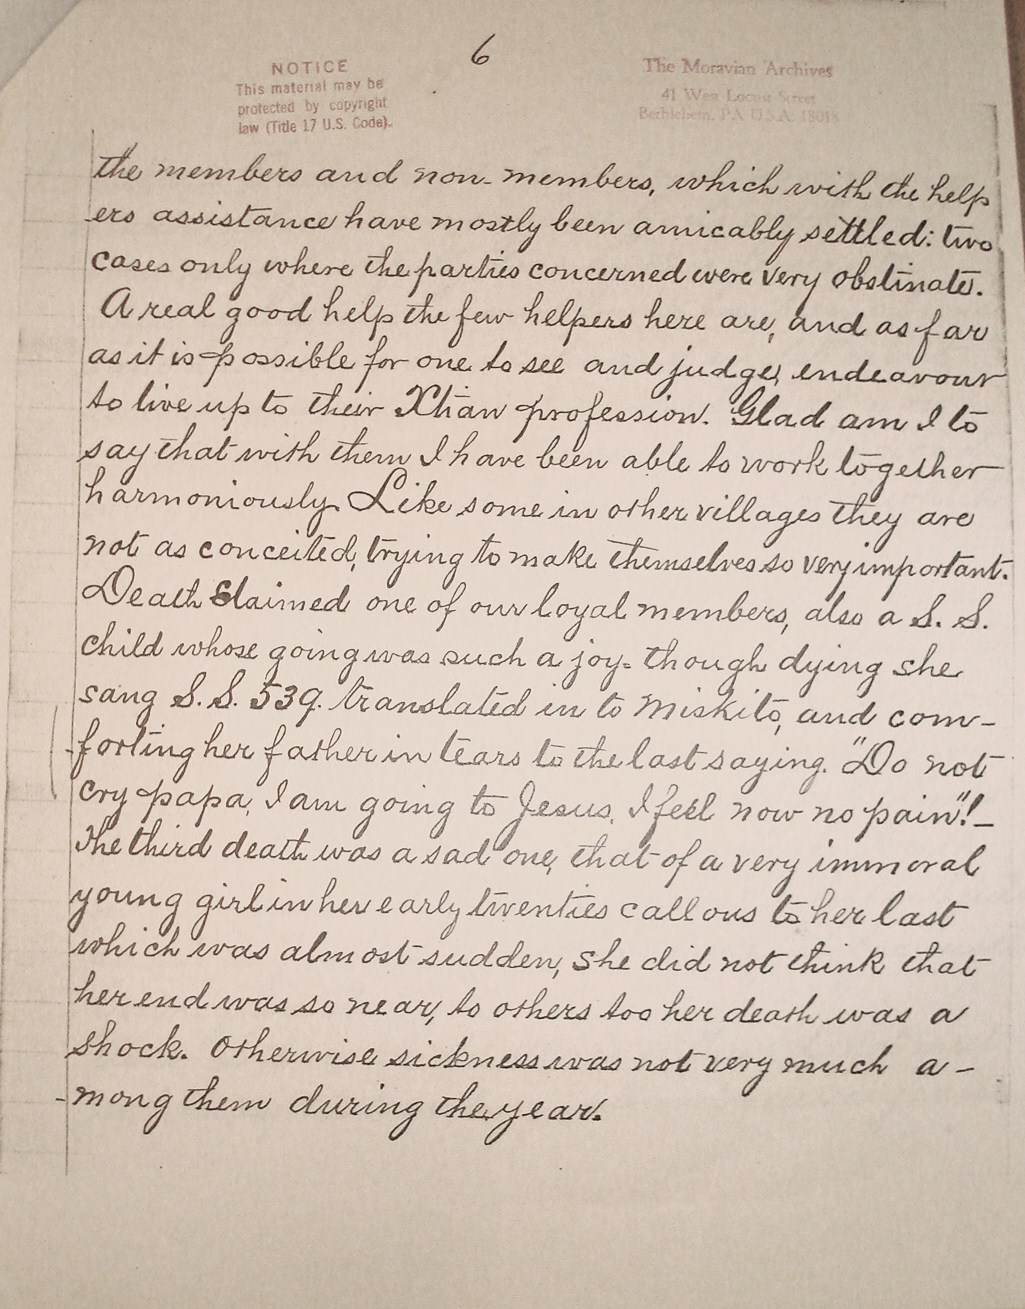 6
NOTICE
This material may be
protected by copyright
law (Title 17 U.S. Code).
The Moravian Archives
41 West Locust Street
Bethlehem, PA U.S.A. 18018
the members and non-members, which with the help
ers assistance have mostly been amicably settled: two
cases only where the parties concerned were very obstinate.
A real good help the few helpers here are, and as far
as it is possible for one to see and judge, endeavour
to live up to their Xtian profession. Glad am I to
say that with them I have been able to work together
harmoniously. Like some in other villages they are
not as conceited, trying to make themselves so very important.
Death claimed one of our loyal members, also a S. S.
child whose going was such a joy - though dying she
sang S. S. 539. translated in to Miskito, and com-
forting her father in tears to the last saying. "Do not
cry papa, I am going to Jesus, I feel now no pain"! -
The third death was a sad one, that of a very immoral
young girl in her early twenties callous to her last
which was almost sudden, she did not think that
her end was so near, to others too her death was a
shock. Otherwise sickness was not very much a -
mong them during the year.